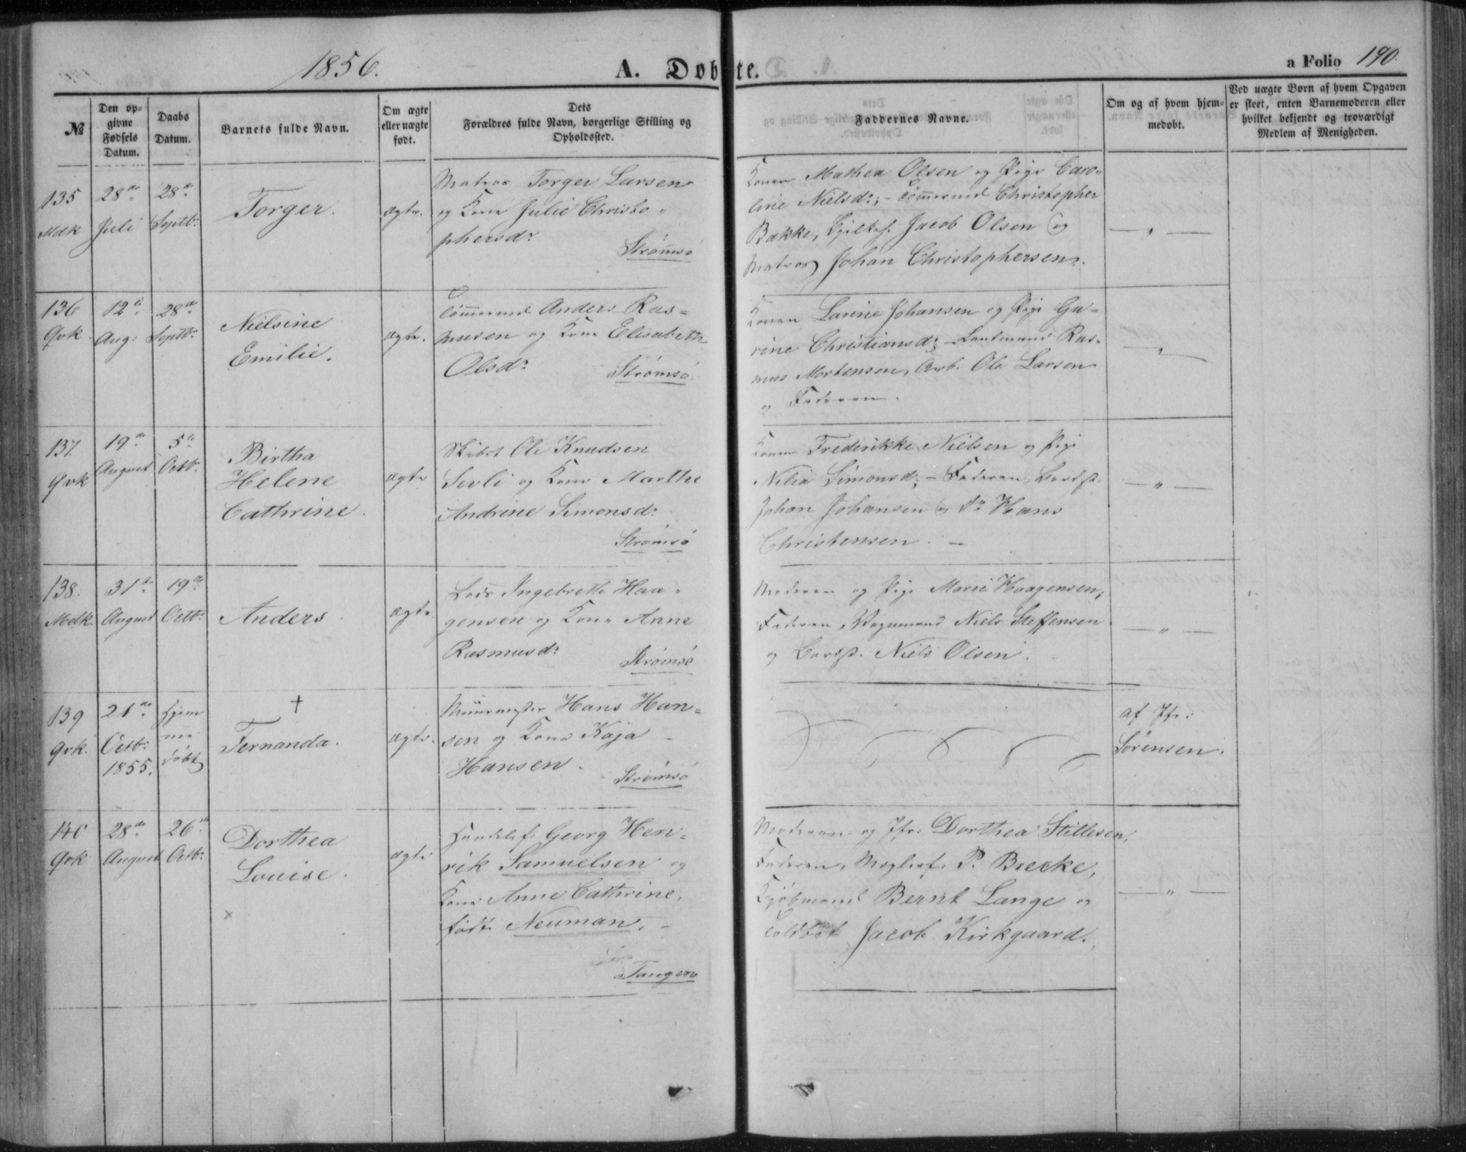 1856.
A. Døbte.
a Folio 190
№
Den op-
givne
Fødsels
Datum.
Daabs
Datum.
Barnets fulde Navn.
Om ægte
eller uægte
født.
Dets
Forældres fulde Navn, borgerlige Stilling og
Opholdssted.
Faddernes Navne.
Om og af hvem hjem-
medøbt.
Ved uægte Børn af hvem Opgaven
er skeet, enten Barnemoderen eller
hvilket bekjendt og troværdigt
Medlem af Menigheden.
135
Mdk
28de
Juli
28de
Septbr
Torger.
ægte.
Matros Torger Larsen
og Kone Julie Christo-
phersdr
Strømsø
Konen Mathea Olsen og Pige Caro-
line Nielsd; – Tømmermd Christopher
Bakke, Jacob Olsen og
Matros Johan Christophersen.
— „ —
136
Qvk
12te
Aug:
28de
Septbr
Nielsine
Emilie.
ægte.
Tømmermd Anders Ras-
musen og Kone Elisabeth
Olsdr
Strømsø.
Konen Larine Johansen og Pige Gu-
rine Christiansd; – Ras-
mus Mortensen, Arb. Ole Larsen
og Faderen.
— „ —
137
Qvk
19de
August
5te
Octbr
Birtha
Helene
Cathrine.
ægte
Skibst Ole Knudsen
og Kone Marthe
Andrine Simonsdr
Strømsø
Konen Frederikke Nielsen og Pige
Simonsd; – Faderen,
Johan Johansen og do Hans
Christensen. –
— „ —
138.
Mdk.
31te
August
19de
Octbr
Anders
ægte
Lods Ingebreth Haa-
gensen og Kone Anne
Rasmusdr
Strømsø
Moderen og Pige Marie Haagensen,
Faderen, Vognmand Niels Steffensen
og Niels Olsen.
— „ —
139
Qvk.
21de
Octbr
1855.
Hjem
me
døbt
†
Fernanda.
ægte.
Muurmester Hans Han-
sen og Kone Kaja
Hansen.
Strømsø
af Jfr:
Sørensen.
140
Qvk
28de
August
26de
Octbr
Dorthea
Louise.
×
ægte
Handelsf. Georg Hen-
rik Samuelsen og
Kone Anne Cathrine,
født Neuman. –
Tangen
Moderen og Jfr. Dorthea Stillesen,
Faderen, P. Brecke,
Kjøbmand Bernt Lange og
Jacob Kirkgaard.
— „ —